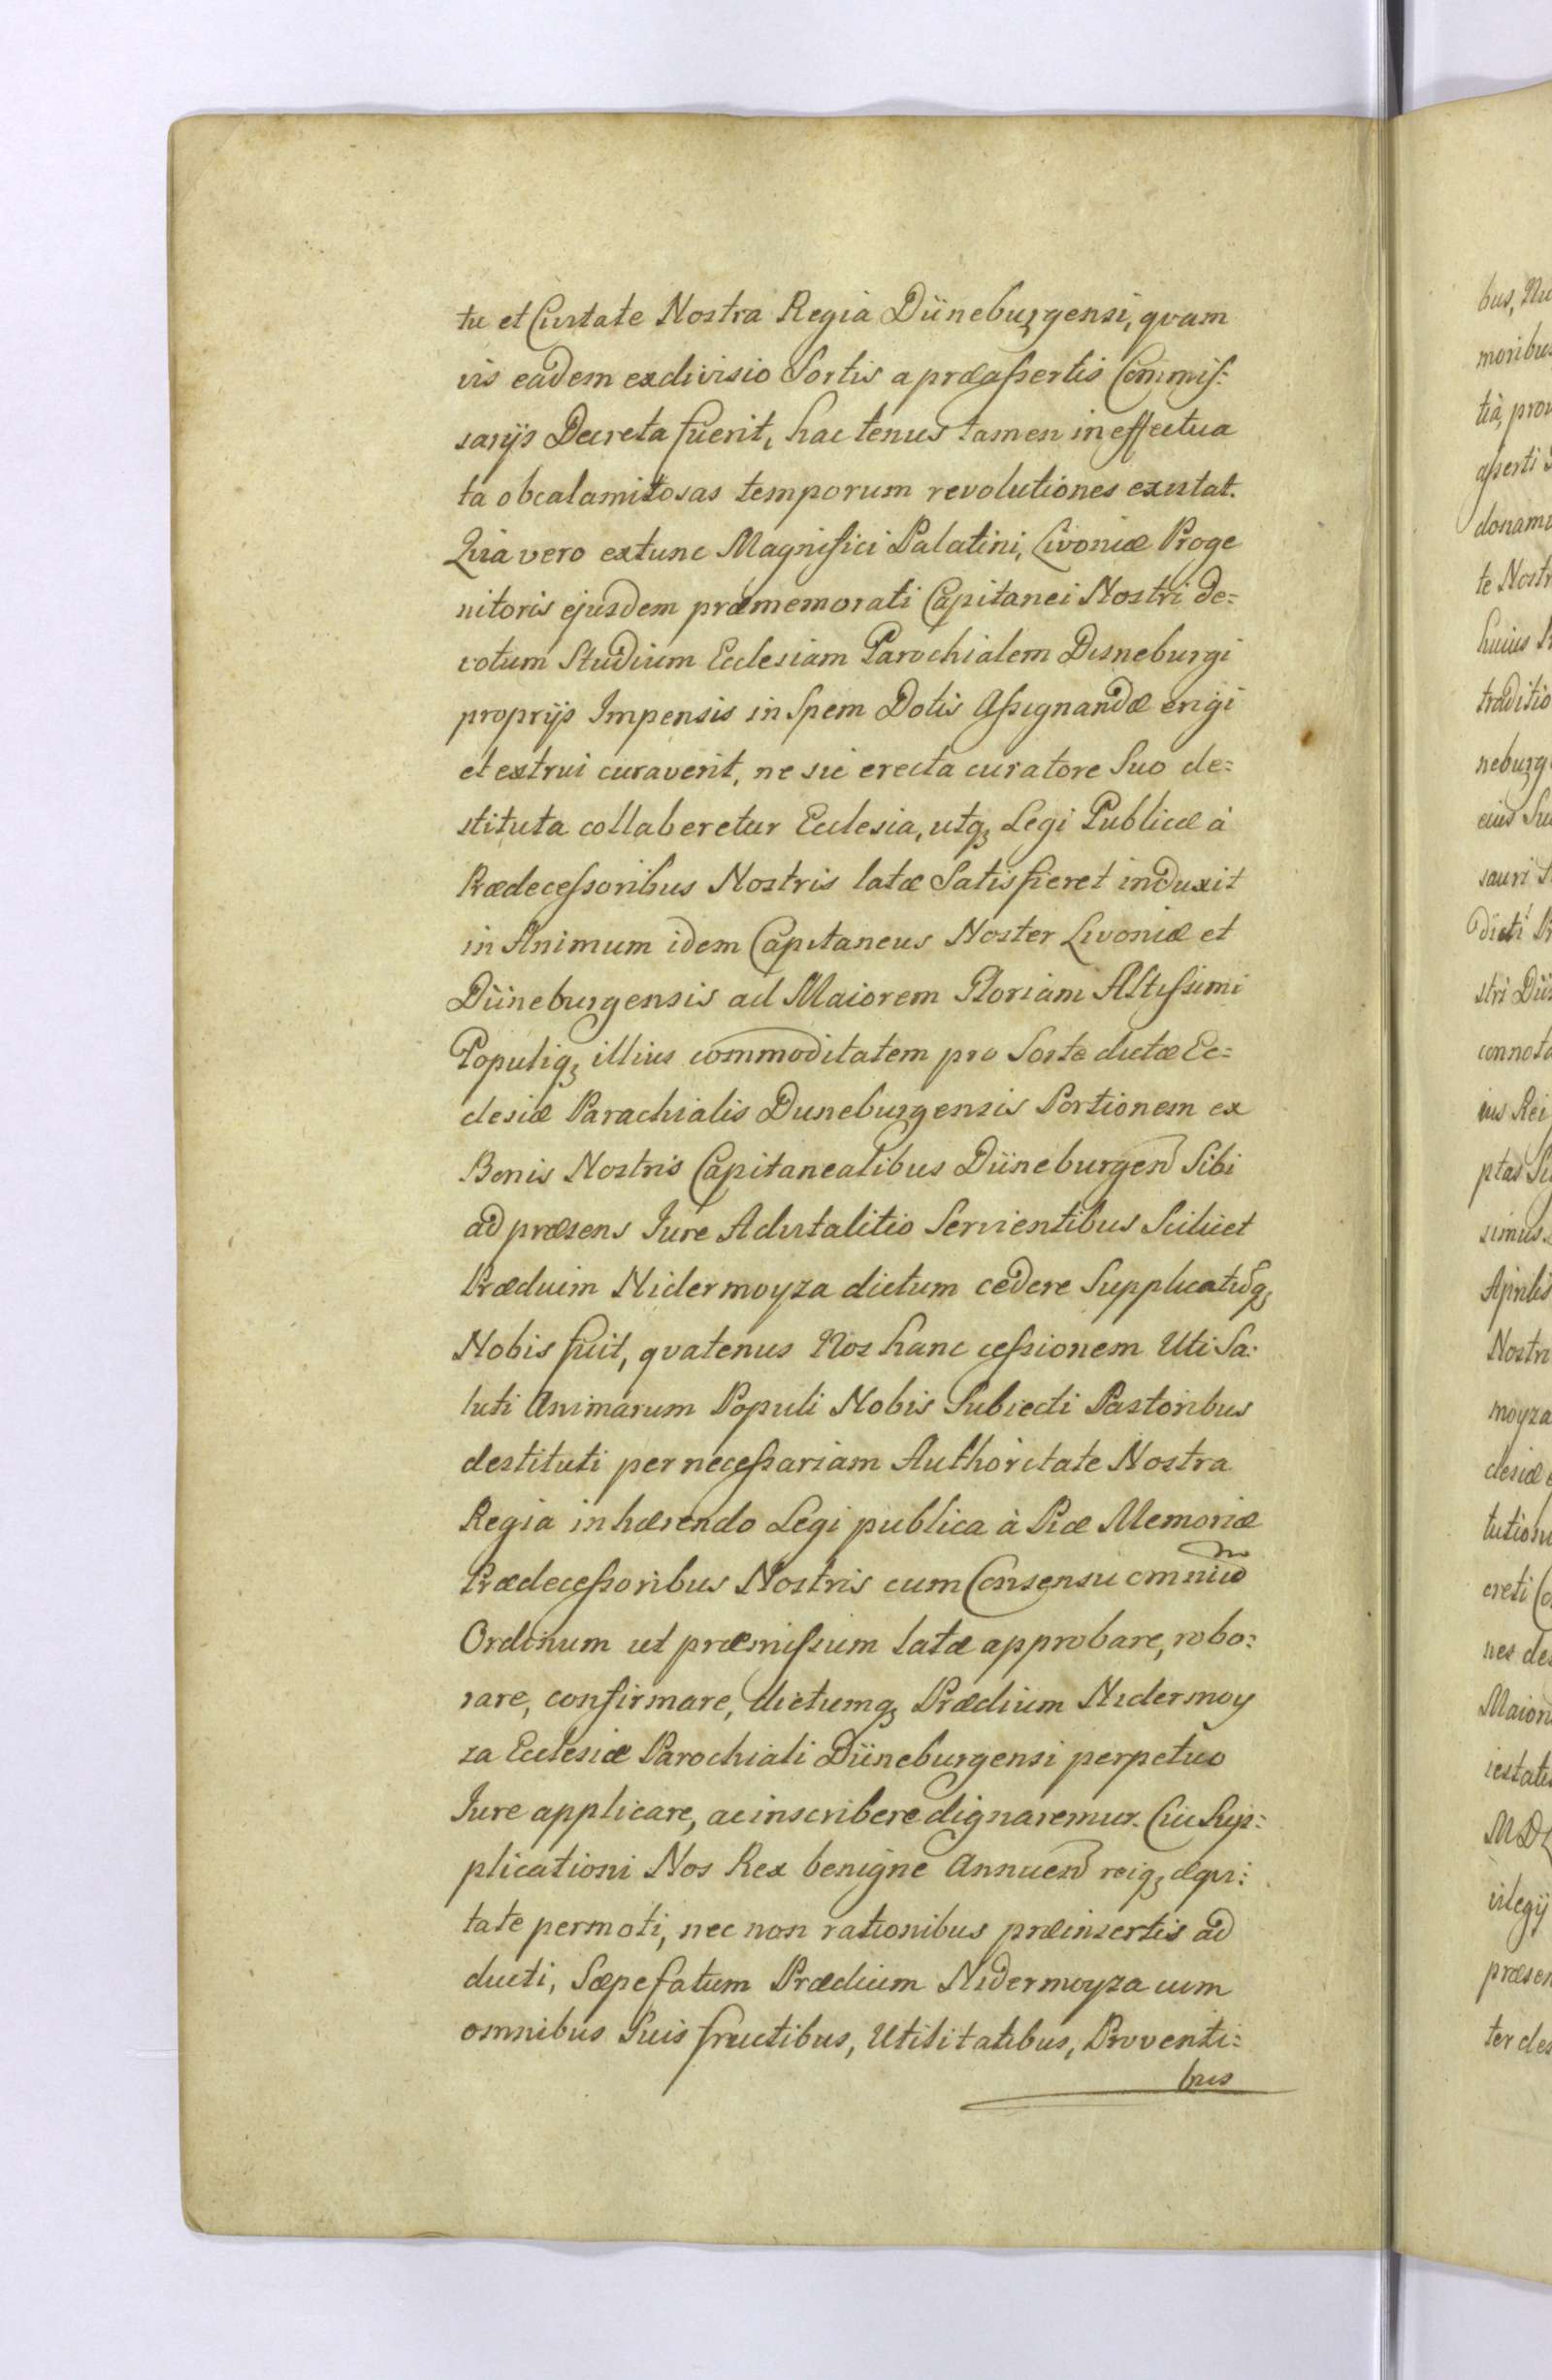 tu et Civitate Nostra Regia Düneburgensi, qvam
vis eadem exdivisio Sortis a præaßertis Commiß:
sarijs Decreta fuerit, hac tenus tamen ineffectua
ta ob calamitosas temporum revolutiones existat.
Quia vero extunc Magnifici Palatini, Livoniæ Proge
nitoris ejusdem præmemorati Capitanei Nostri de=
votum Studium Ecclesiam Parochialem Dsneburgi
proprijs Impensis in Spem Dotis Aßignandæ erigi
et extrui curaverit, ne sic erecta curatore Suo de=
stituta collaberetur Ecclesia, utq3 Legi Publicæ à
Prædeceßoribus Nostris latæ Satisfieret induxit
in Animum idem Capitaneus Noster Livoniæ et
Düneburgensis ad Maiorem Gloriam Altißimi
Populiq3 illius commoditatem pro Sorte dictæ Ec=
clesiæ Parachialis Duneburgensis Portionem ex
Bonis Nostris Capitanealibus Düneburgen Sibi
ad præsens Jure Advitalitio Servientibus Scilicet
Præduim Nidermoyza dictum cedere Supplicatuq3
Nobis fuit, qvatenus Nos hanc ceßionem Uti Sa:
luti Animarum Populi Nobis Subiecti Pastoribus
destituti perneceßariam Authoritate Nostra
Regia inhærendo Legi publica à Piæ Memoriæ
Prædeceßoribus Nostris cum Consensu omniu
Ordinum ut præmißum latæ approbare, robo:
rare, confirmare, dictumq3 Prædium Nidermoy
za Ecclesiæ Parochiali Düneburgensi perpetuo
Jure applicare, ac inscribere dignaremur. Cui Sup:
plicationi Nos Rex benigne Annuen reiq3 æqvi:
tate permoti, nec non rationibus præinsertis ad
ducti, Sæpefatum Prædium Nidermoyza cum
omnibus Suis fructibus, Utilitatibus, Proventi:
bus